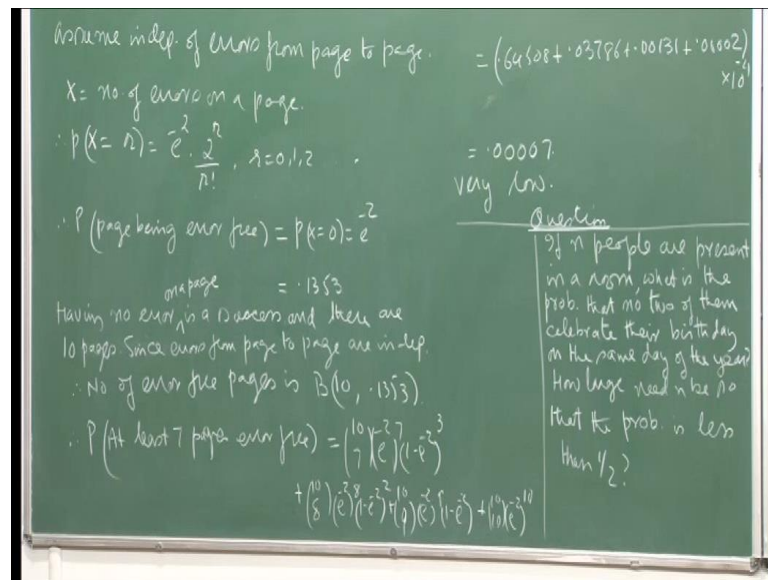 Assume indep. of errors from page to page.
X = no. of errors on a page.
∴ P(X = r) = e^-2 . 2^r / r! , r=0,1,2
∴ P(page being error free) = P(X=0) = e^-2
= .1353
Having no error on a page is a success and there are
10 pages. Since errors from page to page are indep.
∴ No of error free pages is B(10, .1353)
∴ P(At least 7 pages error free) = (10 7)(e^-2)^7 (1-e^-2)^3
+ (10 8)(e^-2)^8 (1-e^-2)^2 + (10 9)(e^-2)^9 (1-e^-2) + (10 10)(e^-2)^10
= (.64508 + .03786 + .00131 + .00002)
×10^-4
= .00007
very low.
Question
If n people are present
in a room, what is the
prob. that no two of them
celebrate their birthday
on the same day of the year?
How large need n be so
that the prob. is less
than 1/2?